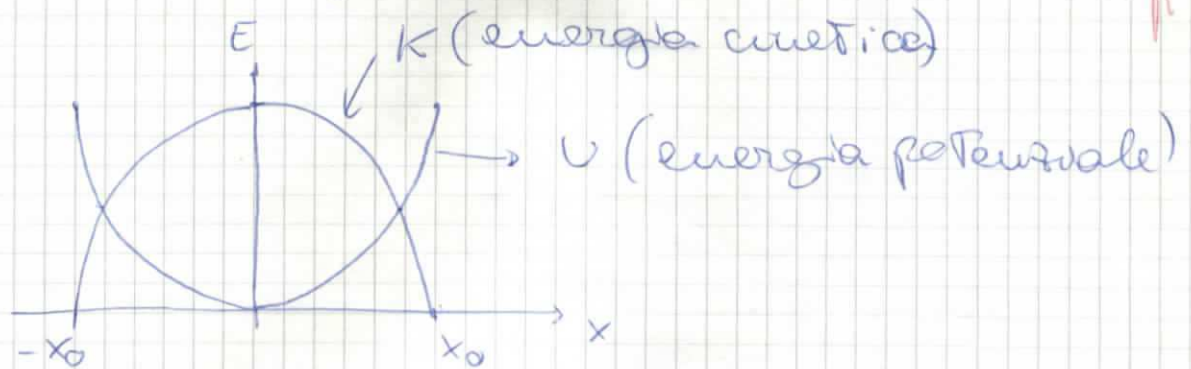 E
K (energia cinetica)
U (energia potenziale)
-x₀
x₀
x